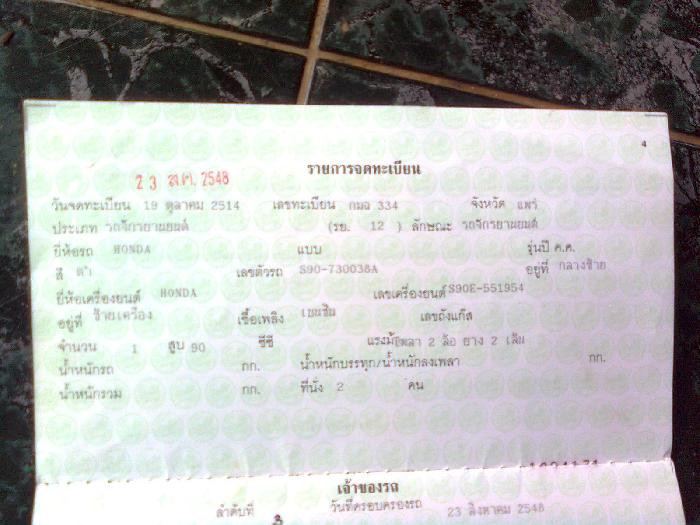 4
รายการจดทะเบียน
23 ส.ค. 2548
วันจดทะเบียน 19 ตุลาคม 2514 เลขทะเบียน กมฉ 334 จังหวัด แพร่
ประเภท รถจักรยานยนต์ (รย. 12 ) ลักษณะ รถจักรยานยนต์
ยี่ห้อรถ HONDA แบบ รุ่นปี ค.ศ.
สี ดำ เลขตัวรถ S90-730038A อยู่ที่ กลางซ้าย
ยี่ห้อเครื่องยนต์ HONDA เลขเครื่องยนต์ S90E-551954
อยู่ที่ ซ้ายเครื่อง เชื้อเพลิง เบนซิน เลขถังแก๊ส
จำนวน 1 สูบ 90 ซีซี แรงม้า เพลา 2 ล้อ ยาง 2 เส้น
น้ำหนักรถ กก. น้ำหนักบรรทุก/น้ำหนักลงเพลา กก.
น้ำหนักรวม กก. ที่นั่ง 2 คน
เจ้าของรถ
ลำดับที่ 3 วันที่ครอบครองรถ 23 สิงหาคม 2548